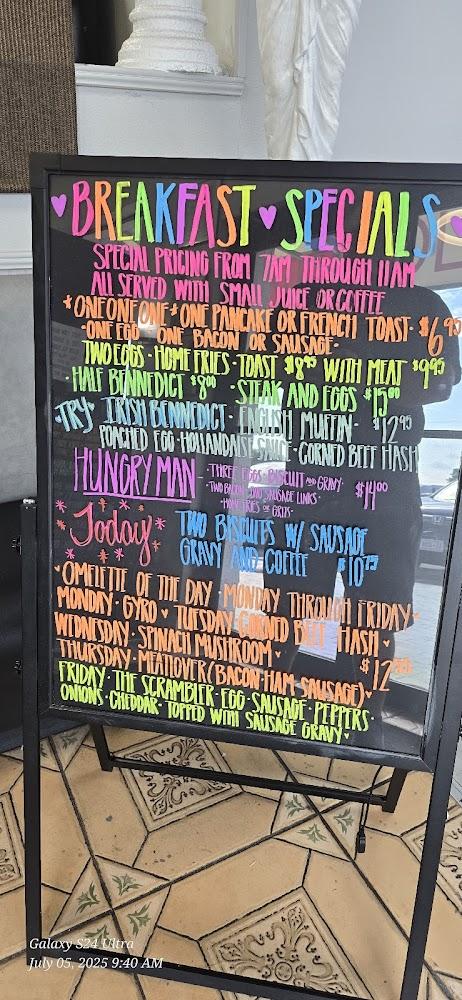 ♥BREAKFAST♥SPECIALS♥
SPECIAL PRICING FROM 7AM THROUGH 11AM
ALL SERVED WITH SMALL JUICE OR COFFEE
*ONE ONE ONE* ONE PANCAKE OR FRENCH TOAST· $6.95
·ONE EGG· ONE BACON OR SAUSAGE·
TWO EGGS·HOME FRIES·TOAST $8.95 WITH MEAT $9.95
·HALF BENNEDICT $8.00 ·STEAK AND EGGS $15.00
·TRY· IRISH BENNEDICT· ENGLISH MUFFIN· $12.95
POACHED EGG·HOLLANDAISE SAUCE·CORNED BEEF HASH
HUNGRY MAN ·THREE EGGS·BISCUIT AND GRAVY·
·TWO BACON·TWO SAUSAGE LINKS· $14.00
·HOME FRIES OR GRITS·
Today TWO BISCUITS W/ SAUSAGE
GRAVY AND COFFEE $10.75
·OMELETTE OF THE DAY·MONDAY THROUGH FRIDAY·
MONDAY·GYRO ♥ TUESDAY CORNED BEEF HASH ♥
WEDNESDAY·SPINACH MUSHROOM ♥
THURSDAY·MEATLOVER(BACON·HAM·SAUSAGE)♥ $12.95
FRIDAY·THE SCRAMBLER·EGG·SAUSAGE·PEPPERS·
ONIONS·CHEDDAR·TOPPED WITH SAUSAGE GRAVY♥
Galaxy S24 Ultra
July 05, 2025 9:40 AM